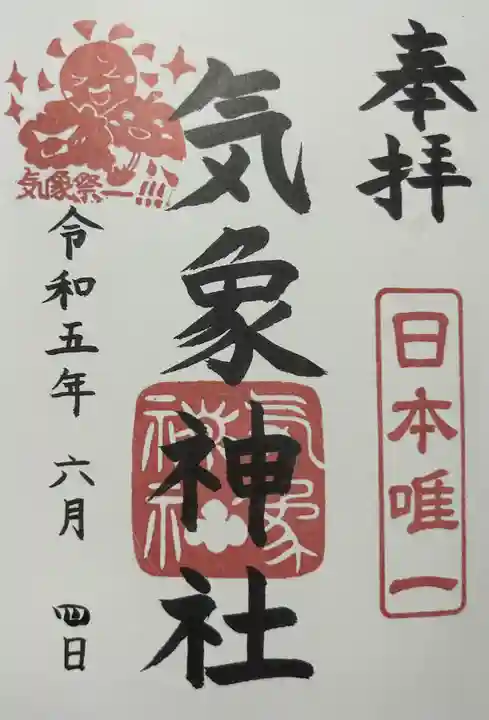 奉拝
日本唯一
気象神社
気象
神社
気象祭ー!!!
令和五年 六月 四日